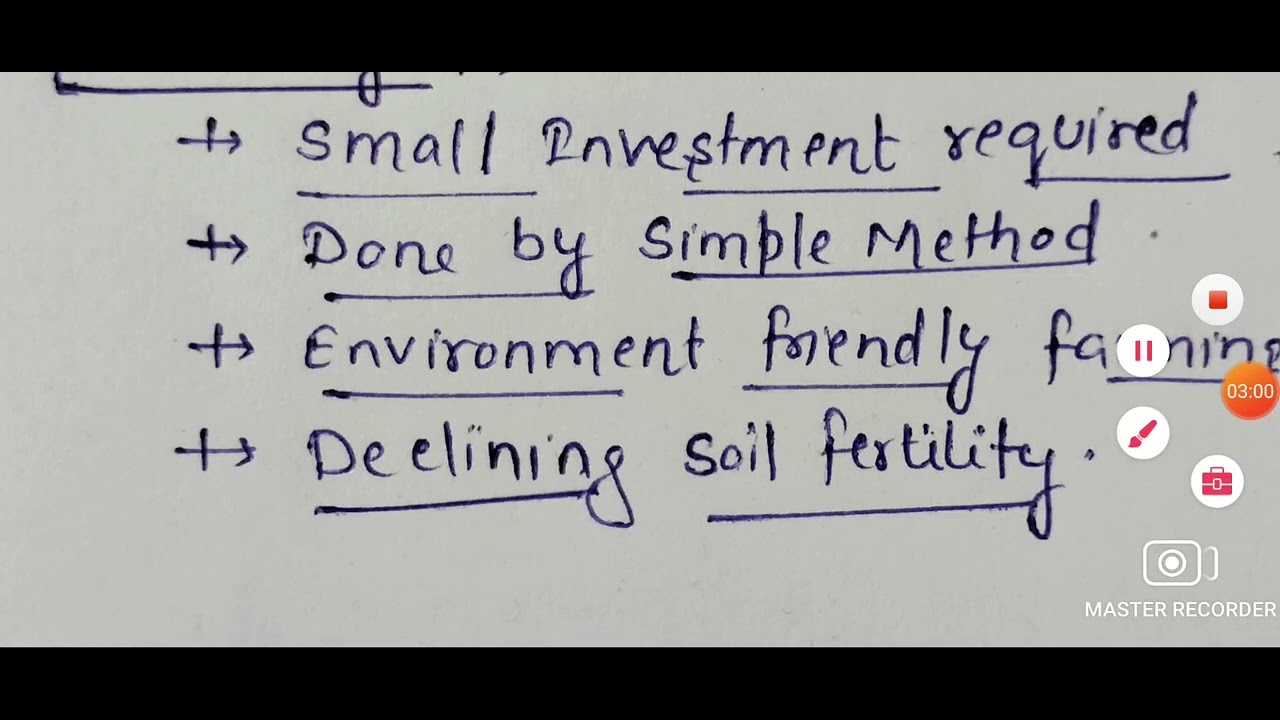 → Small Investment required
→ Done by Simple Method.
→ Environment friendly farming
→ Declining Soil fertility.
03:00
MASTER RECORDER